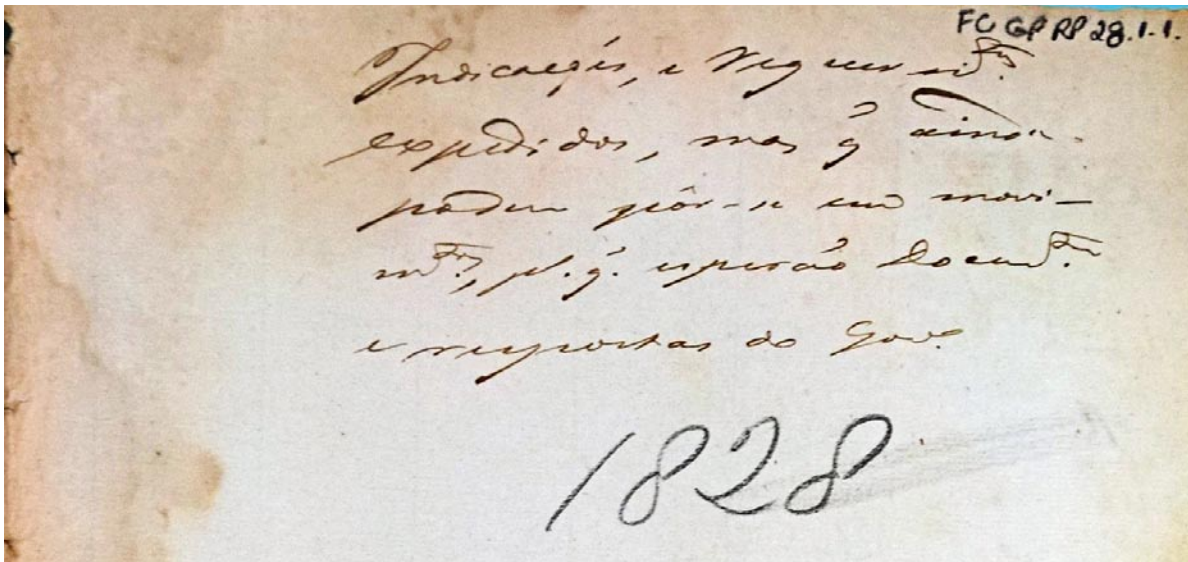 FC GP RP 28.1.1.
Indicações, e Requerim.tos
expedidos, mas q̃ ainda
podem pôr-se em movi-
m.tos, p.r q̃. esperão Docum.tos
e respostas do Gov.o
1828